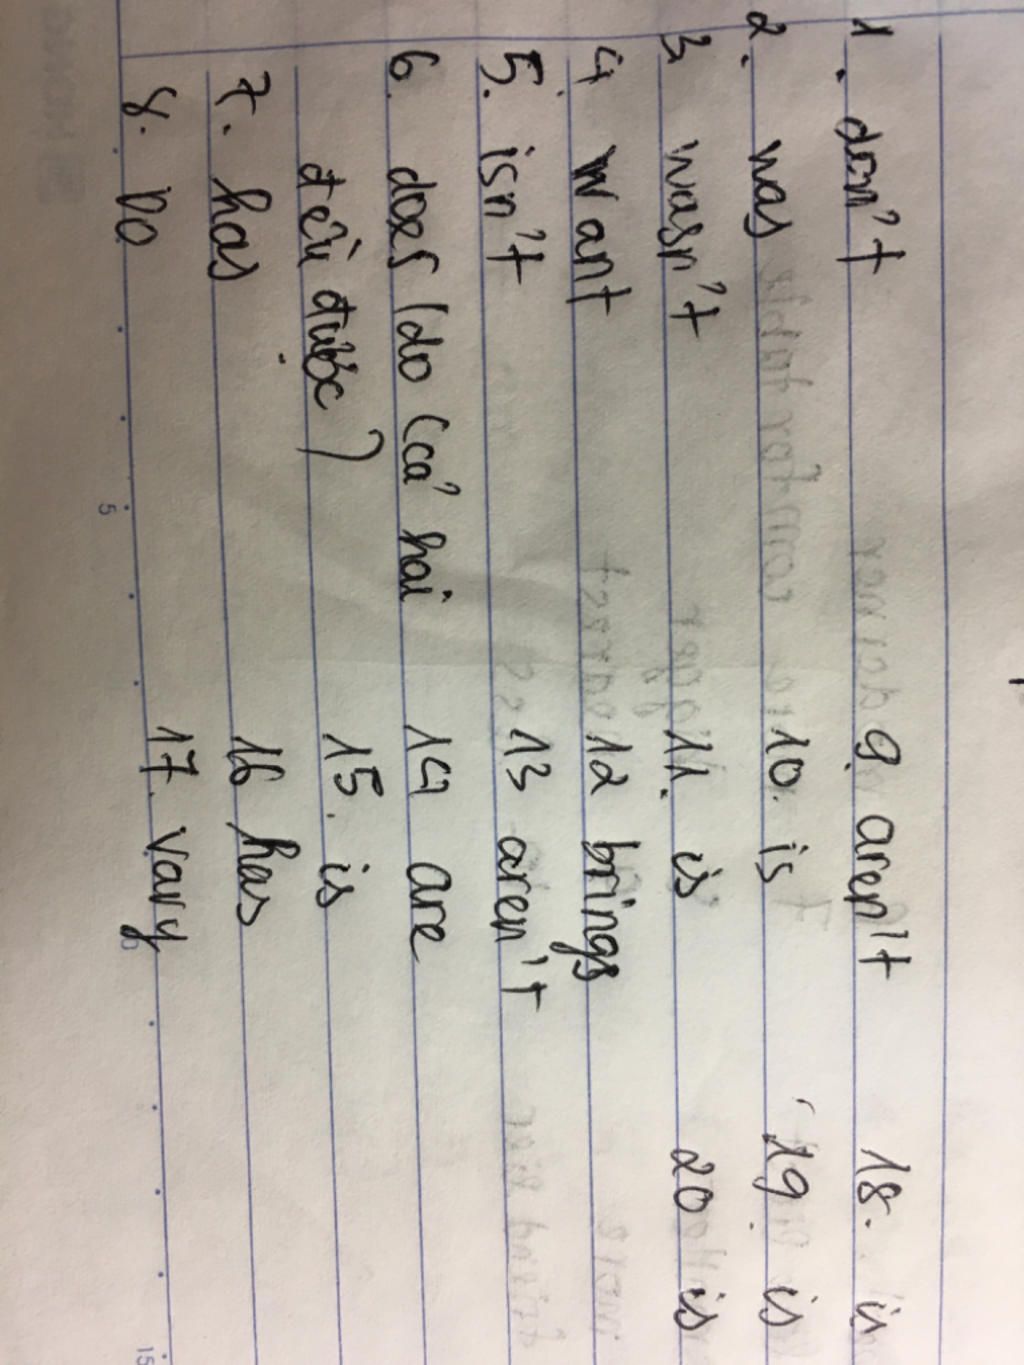 1. don't
2. was
3 wasn't
4. want
5. isn't
6. does/do (cả hai
đều được)
7. has
8. Do
9. aren't
10. is
11. is
12 brings
13 aren't
14 are
15. is
16 has
17. vary
18. is
19. is
20 is